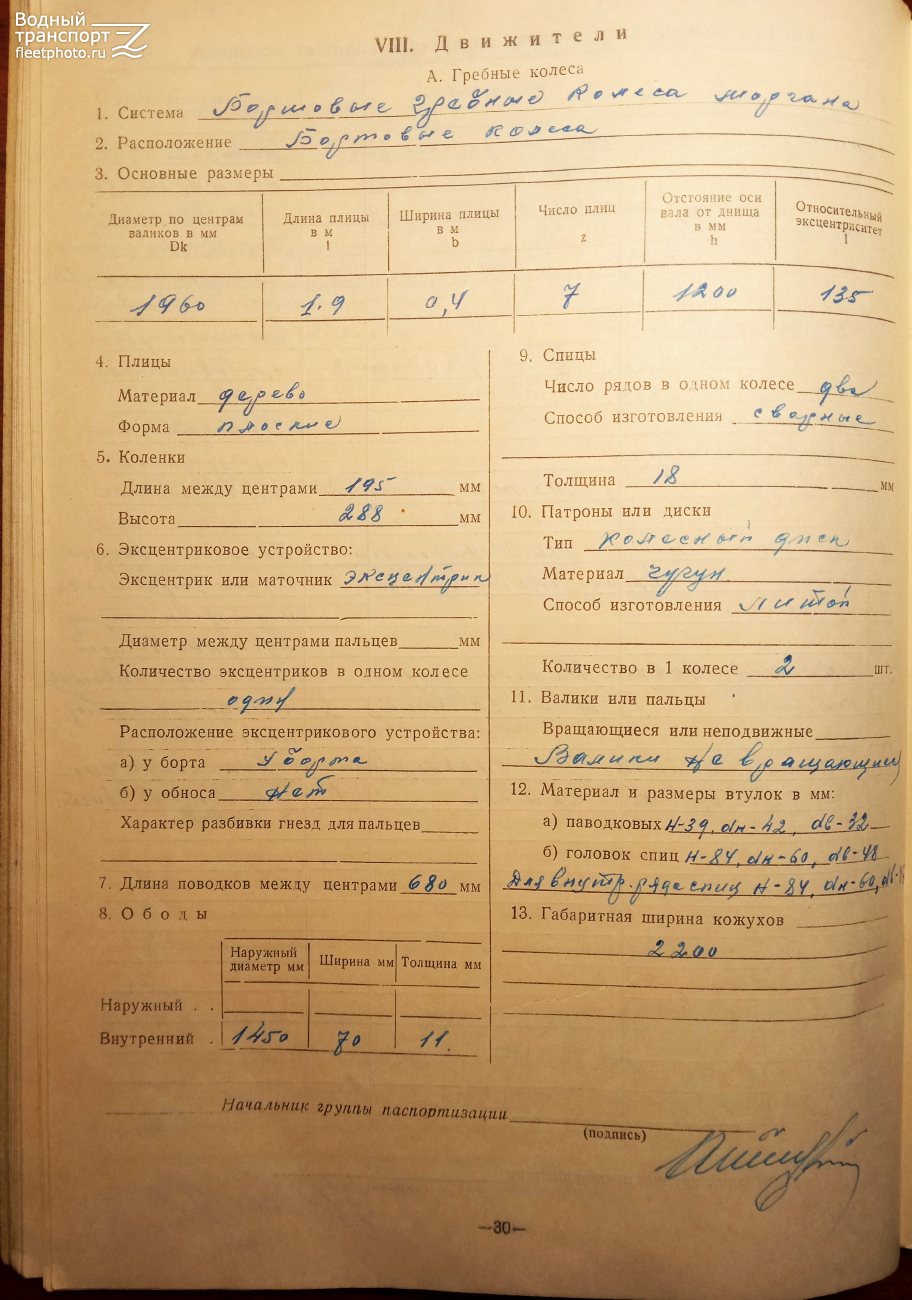 Водный
транспорт
fleetphoto.ru
VIII. Движители
А. Гребные колеса
1. Система Бортовые гребные колеса Моргана
2. Расположение Бортовые колеса
3. Основные размеры
Диаметр по центрам валиков в мм Dk
Длина плицы в м l
Ширина плицы в м b
Число плиц z
Отстояние оси вала от днища в мм h
Относительный эксцентриситет l
1960 1.9 0,4 7 1200 135
4. Плицы
Материал дерево
Форма плоские
5. Коленки
Длина между центрами 195 мм
Высота 288 мм
6. Эксцентриковое устройство:
Эксцентрик или маточник эксцентрик
Диаметр между центрами пальцев мм
Количество эксцентриков в одном колесе
один
Расположение эксцентрикового устройства:
а) у борта У борта
б) у обноса нет
Характер разбивки гнезд для пальцев
7. Длина поводков между центрами 680 мм
8. Ободы
Наружный диаметр мм
Ширина мм
Толщина мм
Наружный . .
Внутренний . 1450 70 11.
9. Спицы
Число рядов в одном колесе два
Способ изготовления сварные
Толщина 18 мм
10. Патроны или диски
Тип колесный диск
Материал чугун
Способ изготовления литой
Количество в 1 колесе 2 шт.
11. Валики или пальцы
Вращающиеся или неподвижные
Валики не вращающиеся
12. Материал и размеры втулок в мм:
а) паводковых Н-39, dн-42, dв-32
б) головок спиц Н-84, dн-60, dв-48
Для внутр. ряда спиц Н-84, dн-60,
13. Габаритная ширина кожухов
2200
Начальник группы паспортизации
(подпись)
—30—